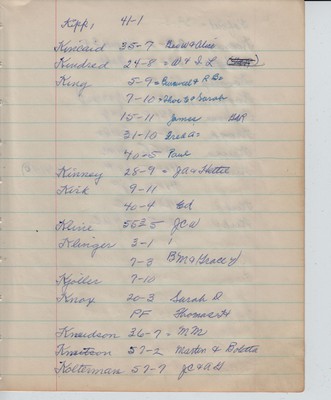 Kipp, 41-1
Kincaid 35-7 Geo W & Alice
Kindred 24-8 = W & I. L
King 5-9 = Emanuel & R Bo
7-10 = Thos & Sarah
15-11 James
31-10 Fred A =
40-5 Paul
Kinney 28-9 = JA & Hettie
Kirk 9-11
40-4 Ed
Kline 55-5 JC W
Klinger 3-1
7-3 B M & Grace V
Kjoller 7-10
Knox 20-3 Sarah D
PF Thomas H
Knudson 36-7 = M M
Knutson 57-2 Martin & Boletta
Kolterman 57-7 JC & AG